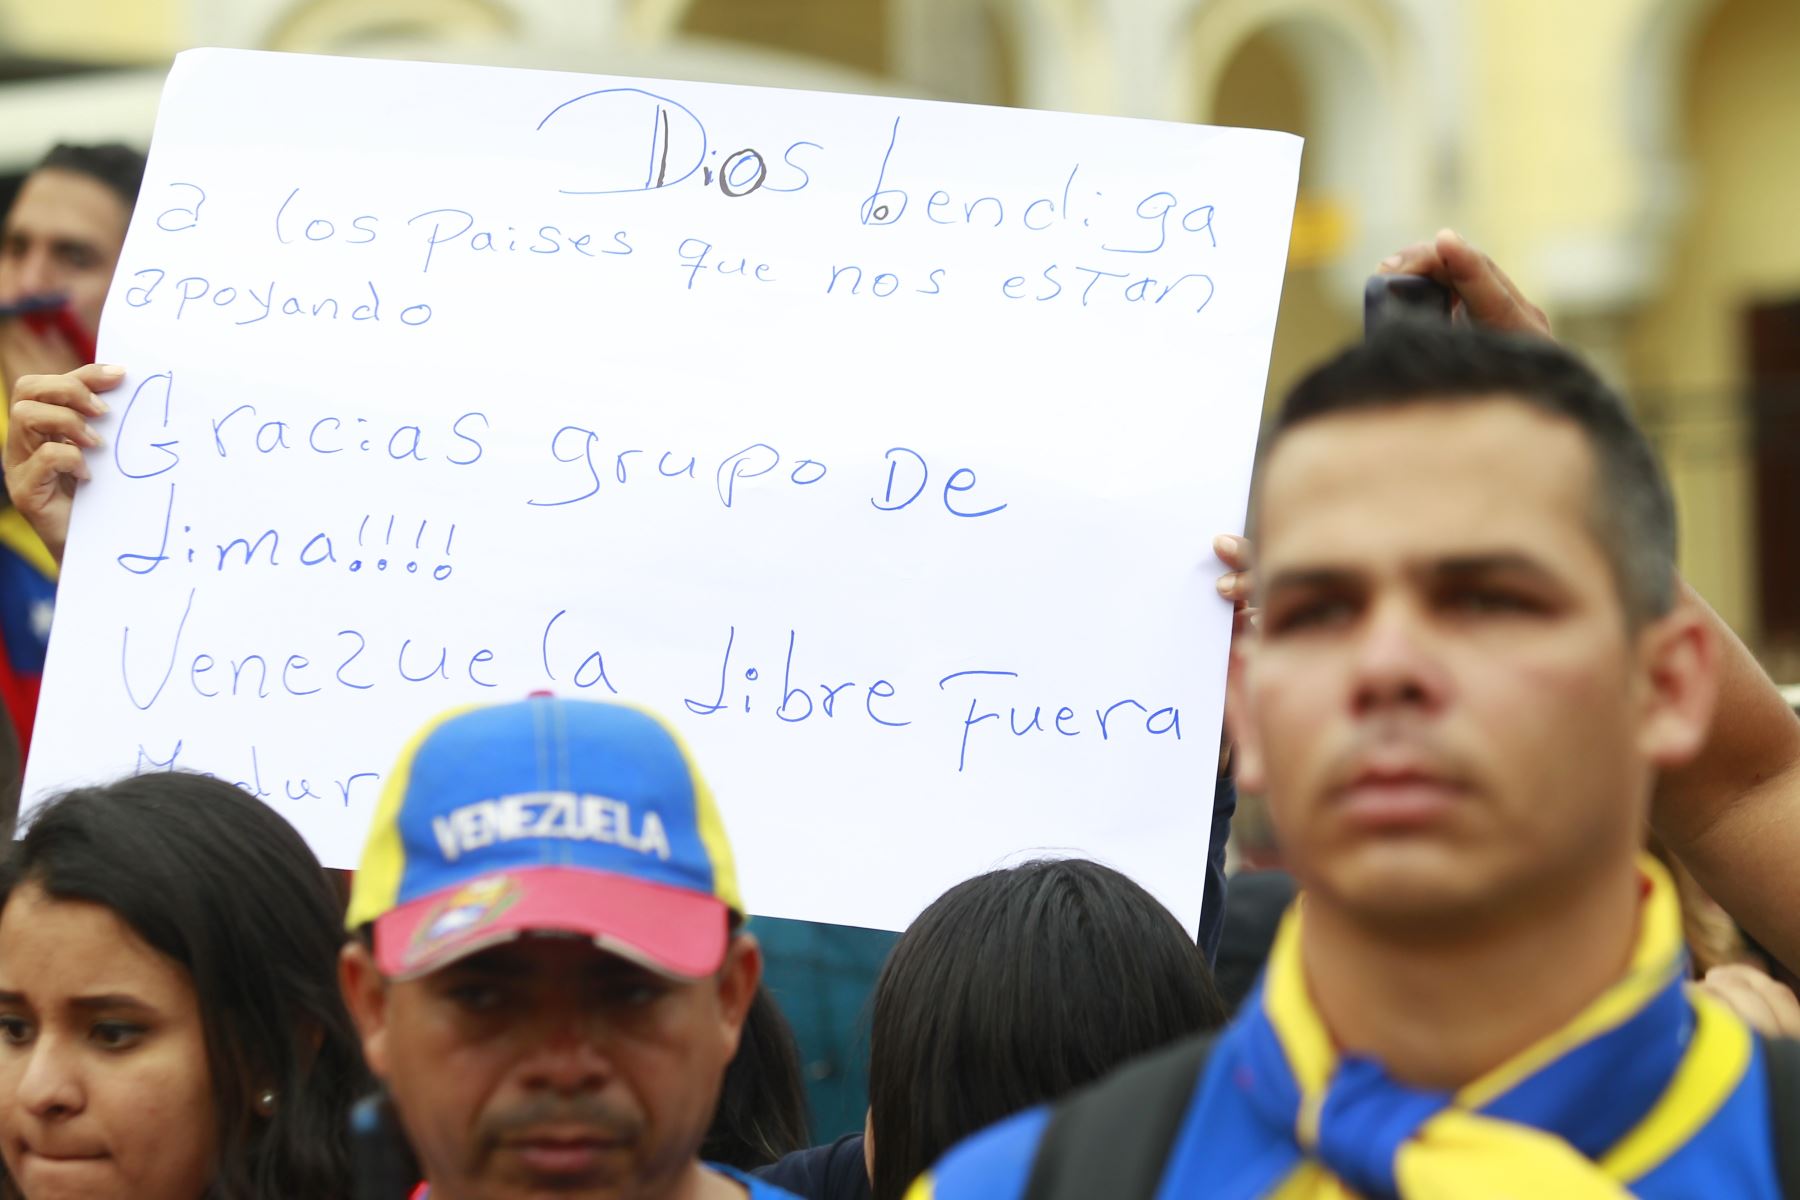 Dios bendiga
a los Paises que nos estan
apoyando
Gracias grupo De
Lima!!!!
Venezuela Libre Fuera
Madur
VENEZUELA